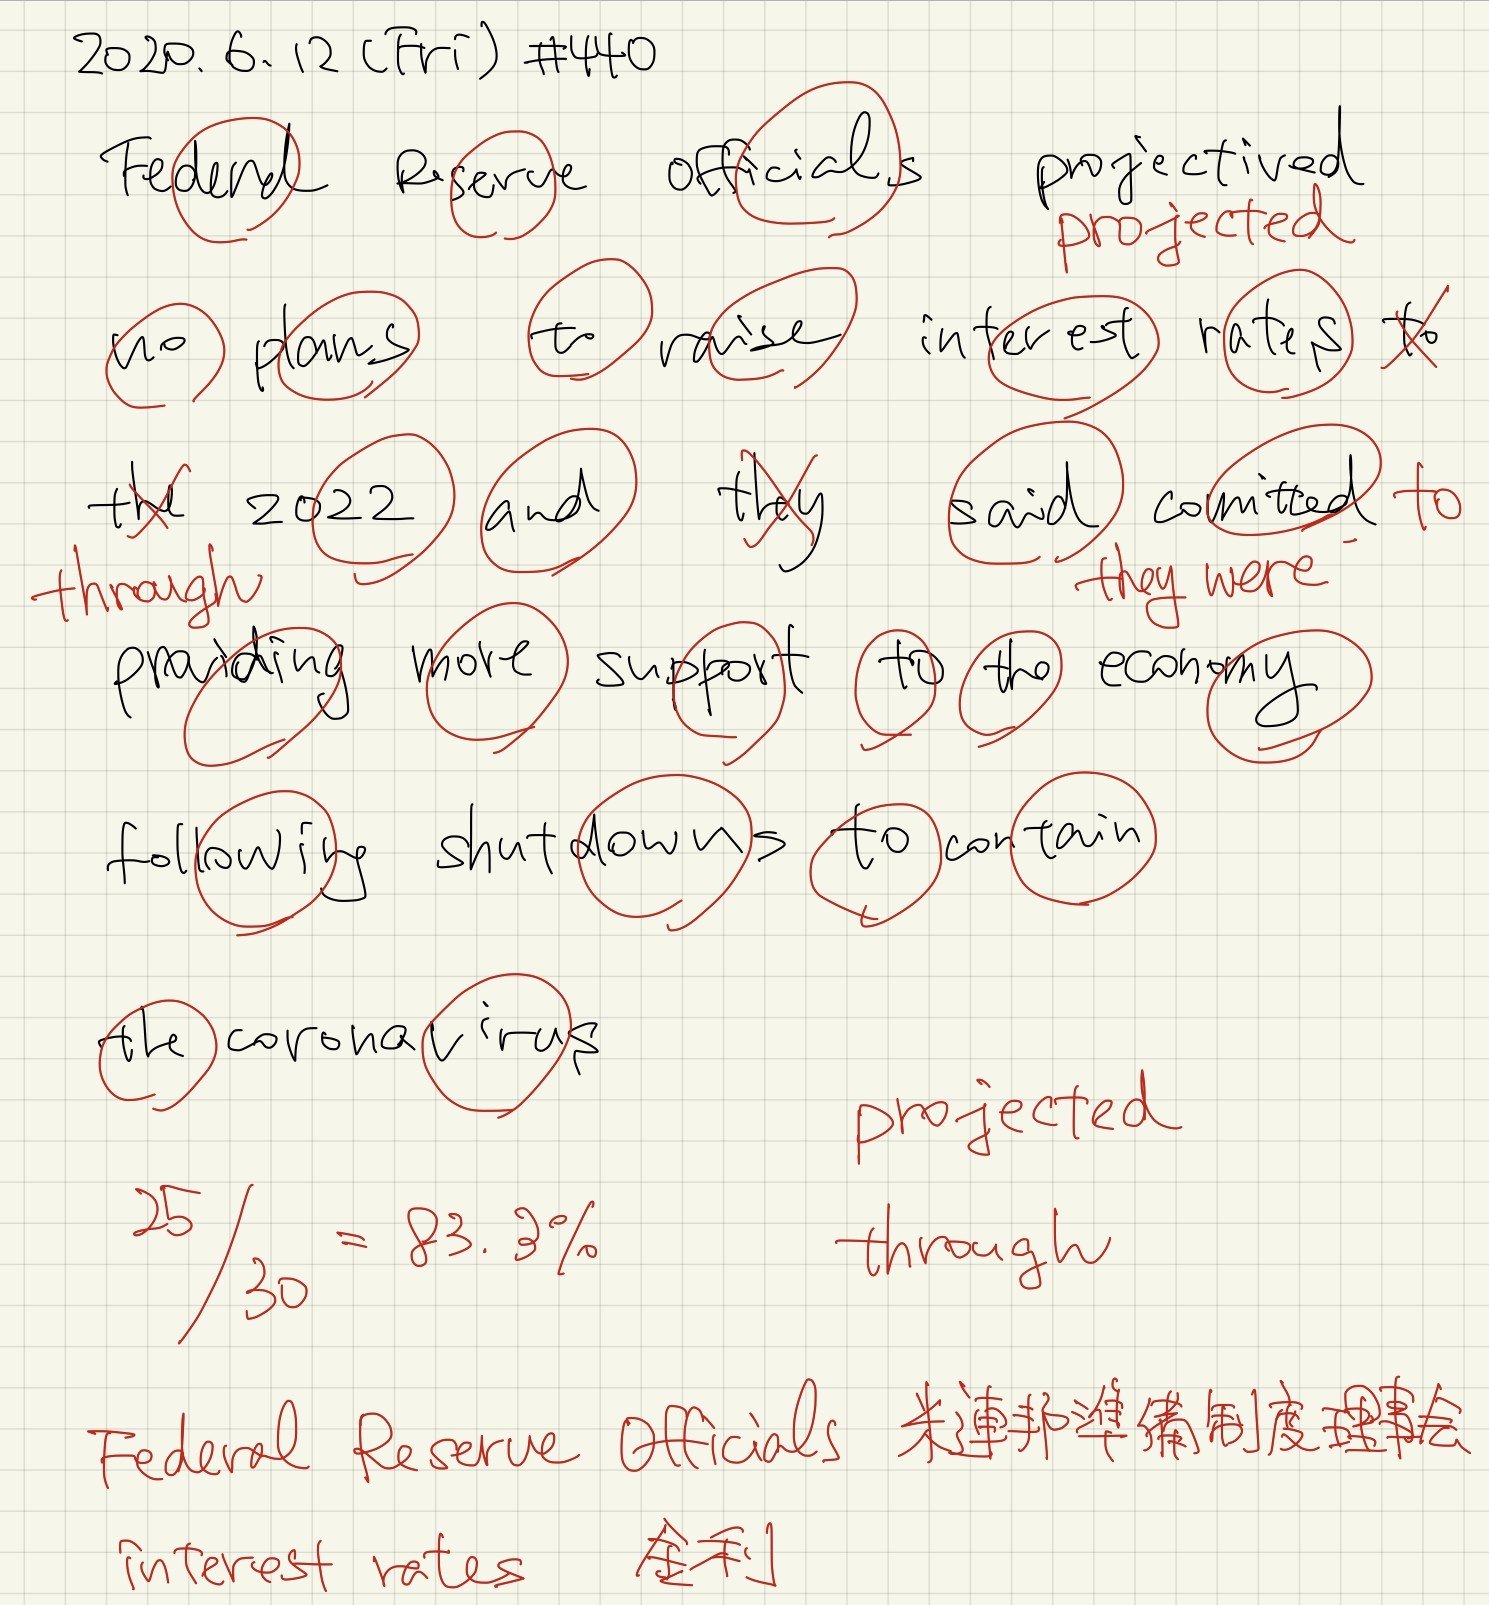 2020. 6. 12 (Fri) #440
Federal Reserve officials projectived
projected
no plans to raise interest rates to
the 2022 and they said comitted to
through they were
providing more support to the economy
following shutdowns to contain
the coronavirus
projected
25/30 = 83.3%
through
Federal Reserve Officials 米連邦準備制度理事会
interest rates 金利